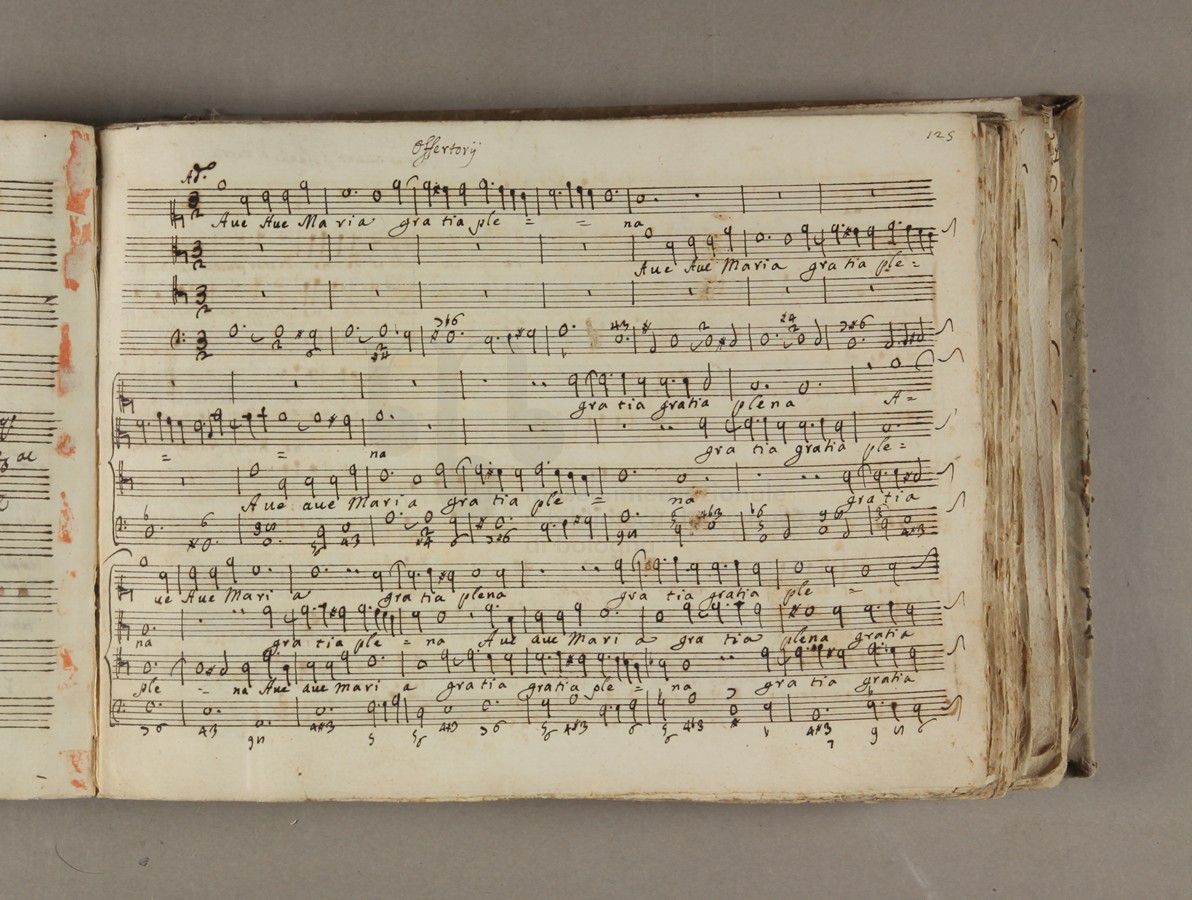 Offertorij
125
Ad.o
Aue Aue Maria gratia ple = = na
Aue Aue Maria gratia ple =
gra tia gratia plena A =
= = na gra tia gratia ple =
Aue aue Maria gra tia ple = na gratia
ue Aue Mari a gra tia plena gra tia gratia ple =
na gra tia ple = na Aue aue Mari a gra tia plena gratia
ple = na Aue aue mari a gra tia gratia ple = na gra tia gratia